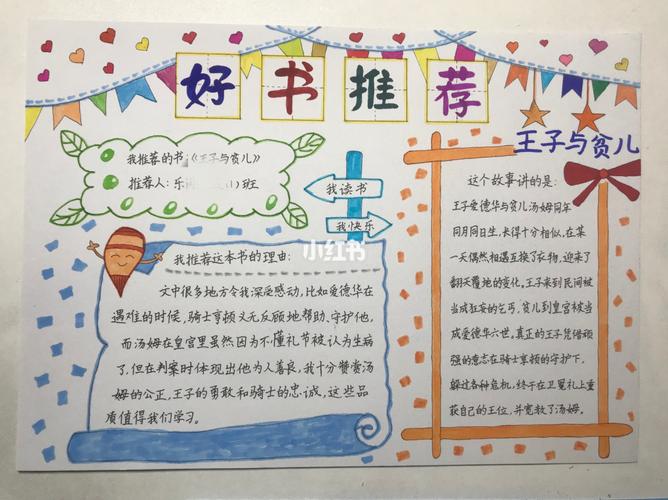 好书推荐
我推荐的书:《王子与贫儿》
推荐人:乐 (1)班
我读书
我快乐
小红书
我推荐这本书的理由:
文中很多地方令我深受感动,比如爱德华在
遇难的时候,骑士亨顿义无反顾地帮助、守护他,
而汤姆在皇宫里虽然因为不懂礼节被认为生病
了,但在判案时体现出他为人善良,我十分赞赏汤
姆的公正,王子的勇敢和骑士的忠诚,这些品
质值得我们学习。
王子与贫儿
这个故事讲的是:
王子爱德华与贫儿汤姆同年
同月同日生,未得十分相似,在某
一天偶然相遇互换了衣物,迎来了
翻天覆地的变化,王子来到民间被
当成狂妄的乞丐,贫儿到皇宫被当
成爱德华六世。真正的王子凭借顽
强的意志在骑士亨顿的守护下,
躲过各种危机,终于在卫冕礼上重
获自己的王位,并宽敕了汤姆。